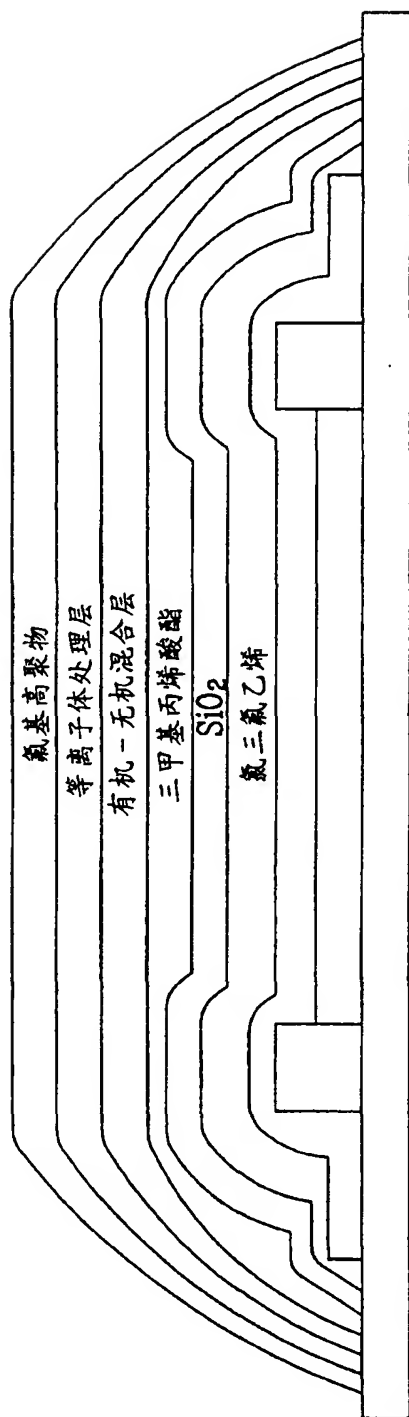 氟基高聚物
等离子体处理层
有机-无机混合层
三甲基丙烯酸酯
SiO₂
氯三氟乙烯